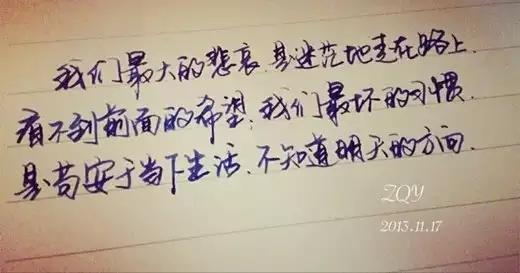 我们最大的悲哀,是迷茫地走在路上,
看不到前面的希望;我们最坏的习惯,
是苟安于当下生活,不知道明天的方向.
ZQY
2013.11.17